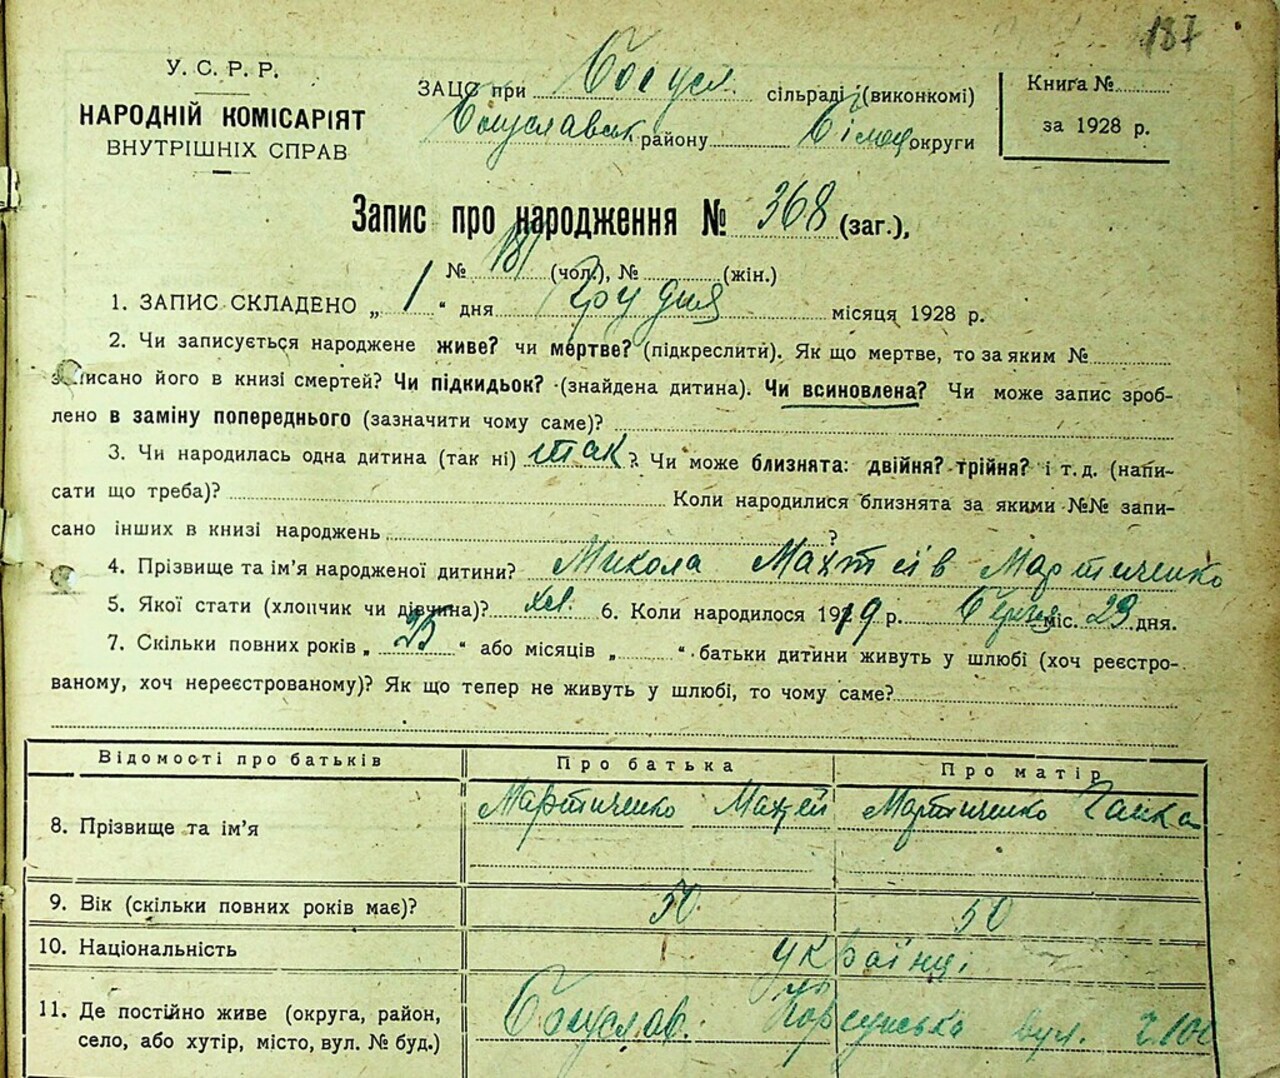 187
У. С. Р. Р.
НАРОДНІЙ КОМІСАРІЯТ
ВНУТРІШНІХ СПРАВ
ЗАЦС при Богусл. сільраді (виконкомі)
Богуславськ району Білоц округи
Книга №
за 1928 р.
Запис про народження № 368 (заг.),
№ 181 (чол.), № (жін.)
1. ЗАПИС СКЛАДЕНО „ 1 “ дня Грудня місяця 1928 р.
2. Чи записується народжене живе? чи мертве? (підкреслити). Як що мертве, то за яким №
записано його в книзі смертей? Чи підкидьок? (знайдена дитина). Чи всиновлена? Чи може запис зроб-
лено в заміну попереднього (зазначити чому саме)?
3. Чи народилась одна дитина (так ні) так ? Чи може близнята: двійня? трійня? і т. д. (напи-
сати що треба)? Коли народилися близнята за якими №№ запи-
сано інших в книзі народжень ?
4. Прізвище та ім’я народженої дитини? Микола Мартиченко
5. Якої стати (хлопчик чи дівчина)? 6. Коли народилося 1919 р. міс. 23 дня.
7. Скільки повних років „ 25 “ або місяців „ “ батьки дитини живуть у шлюбі (хоч реєстро-
ваному, хоч нереєстрованому)? Як що тепер не живуть у шлюбі, то чому саме?
Відомості про батьків Про батька Про матір
8. Прізвище та ім’я Мартиченко Мартиченко
9. Вік (скільки повних років має)? 50 50
10. Національність українці
11. Де постійно живе (округа, район,
село, або хутір, місто, вул. № буд.)
Богуслав. Корсунська вул.